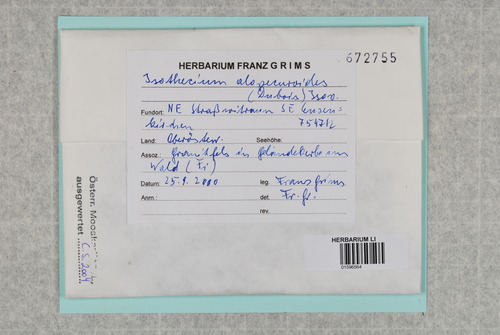 HERBARIUM FRANZ GRIMS
672755
Isothecium alopecuroides
(Dubois) Isov.
Fundort: NE Straßwitraun SE
kirchen 7547/2
Land: Oberösterr. Seehöhe:
Assoz.: Granitfels in Geländekerbe im
Wald (Fi)
Datum: 25.9.2000 leg. Franz Grims
Anm.: det. Fr. Gr.
rev.
HERBARIUM LI
01596564
Österr. Moos
ausgewertet
C.S. 2004